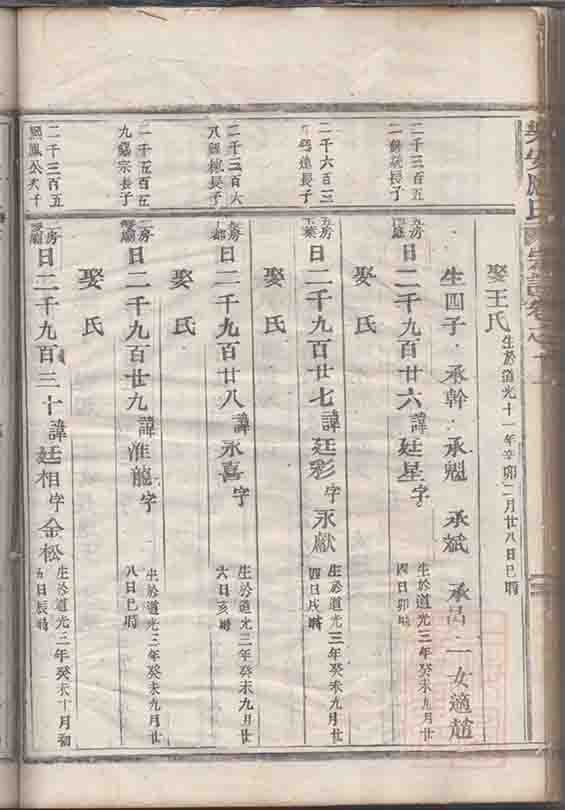 娶王氏 生於道光十一年辛卯二月廿八日巳時
生四子 承幹 承魁 承斌 承昌 一女適趙
二千三百五
長子
日二千九百廿六諱廷星字 生於道光三年癸未九月廿四日卯時
娶氏
二千六百三
長子
日二千九百廿七諱廷彩字永獻 生於道光三年癸未九月廿四日戌時
娶氏
二千三百六
長子
日二千九百廿八諱永喜字 生於道光三年癸未九月廿六日亥時
娶氏
二千五百五
九 宗長子
日二千九百廿九諱淮龍字 生於道光三年癸未九月廿八日巳時
娶氏
二千三百五
鳳公次子
日二千九百三十諱廷相字金松 生於道光三年癸未十月初五日辰時